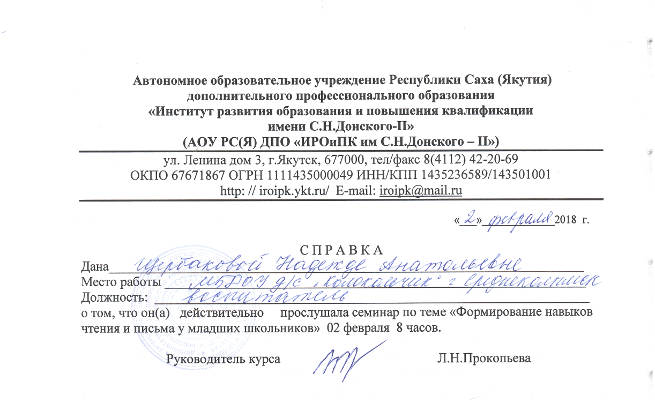 Автономное образовательное учреждение Республики Саха (Якутия)
дополнительного профессионального образования
«Институт развития образования и повышения квалификации
имени С.Н.Донского-II»
(АОУ РС(Я) ДПО «ИРОиПК им С.Н.Донского – II»)
ул. Ленина дом 3, г.Якутск, 677000, тел/факс 8(4112) 42-20-69
ОКПО 67671867 ОГРН 1111435000049 ИНН/КПП 1435236589/143501001
http: // iroipk.ykt.ru/ E-mail: iroipk@mail.ru
« 2 » февраля 2018 г.
СПРАВКА
Дана Щербаковой Надежде Анатольевне
Место работы МБДОУ д/с „Колокольчик" г Среднеколымск
Должность: воспитатель
о том, что он(а) действительно прослушала семинар по теме «Формирование навыков
чтения и письма у младших школьников» 02 февраля 8 часов.
Руководитель курса Л.Н.Прокопьева